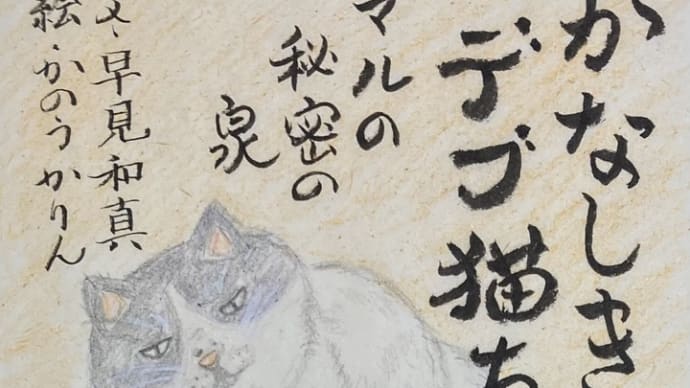 かなしき
デブ猫ち
マルの
秘密の
泉
文・早見和真
絵・かのうかりん